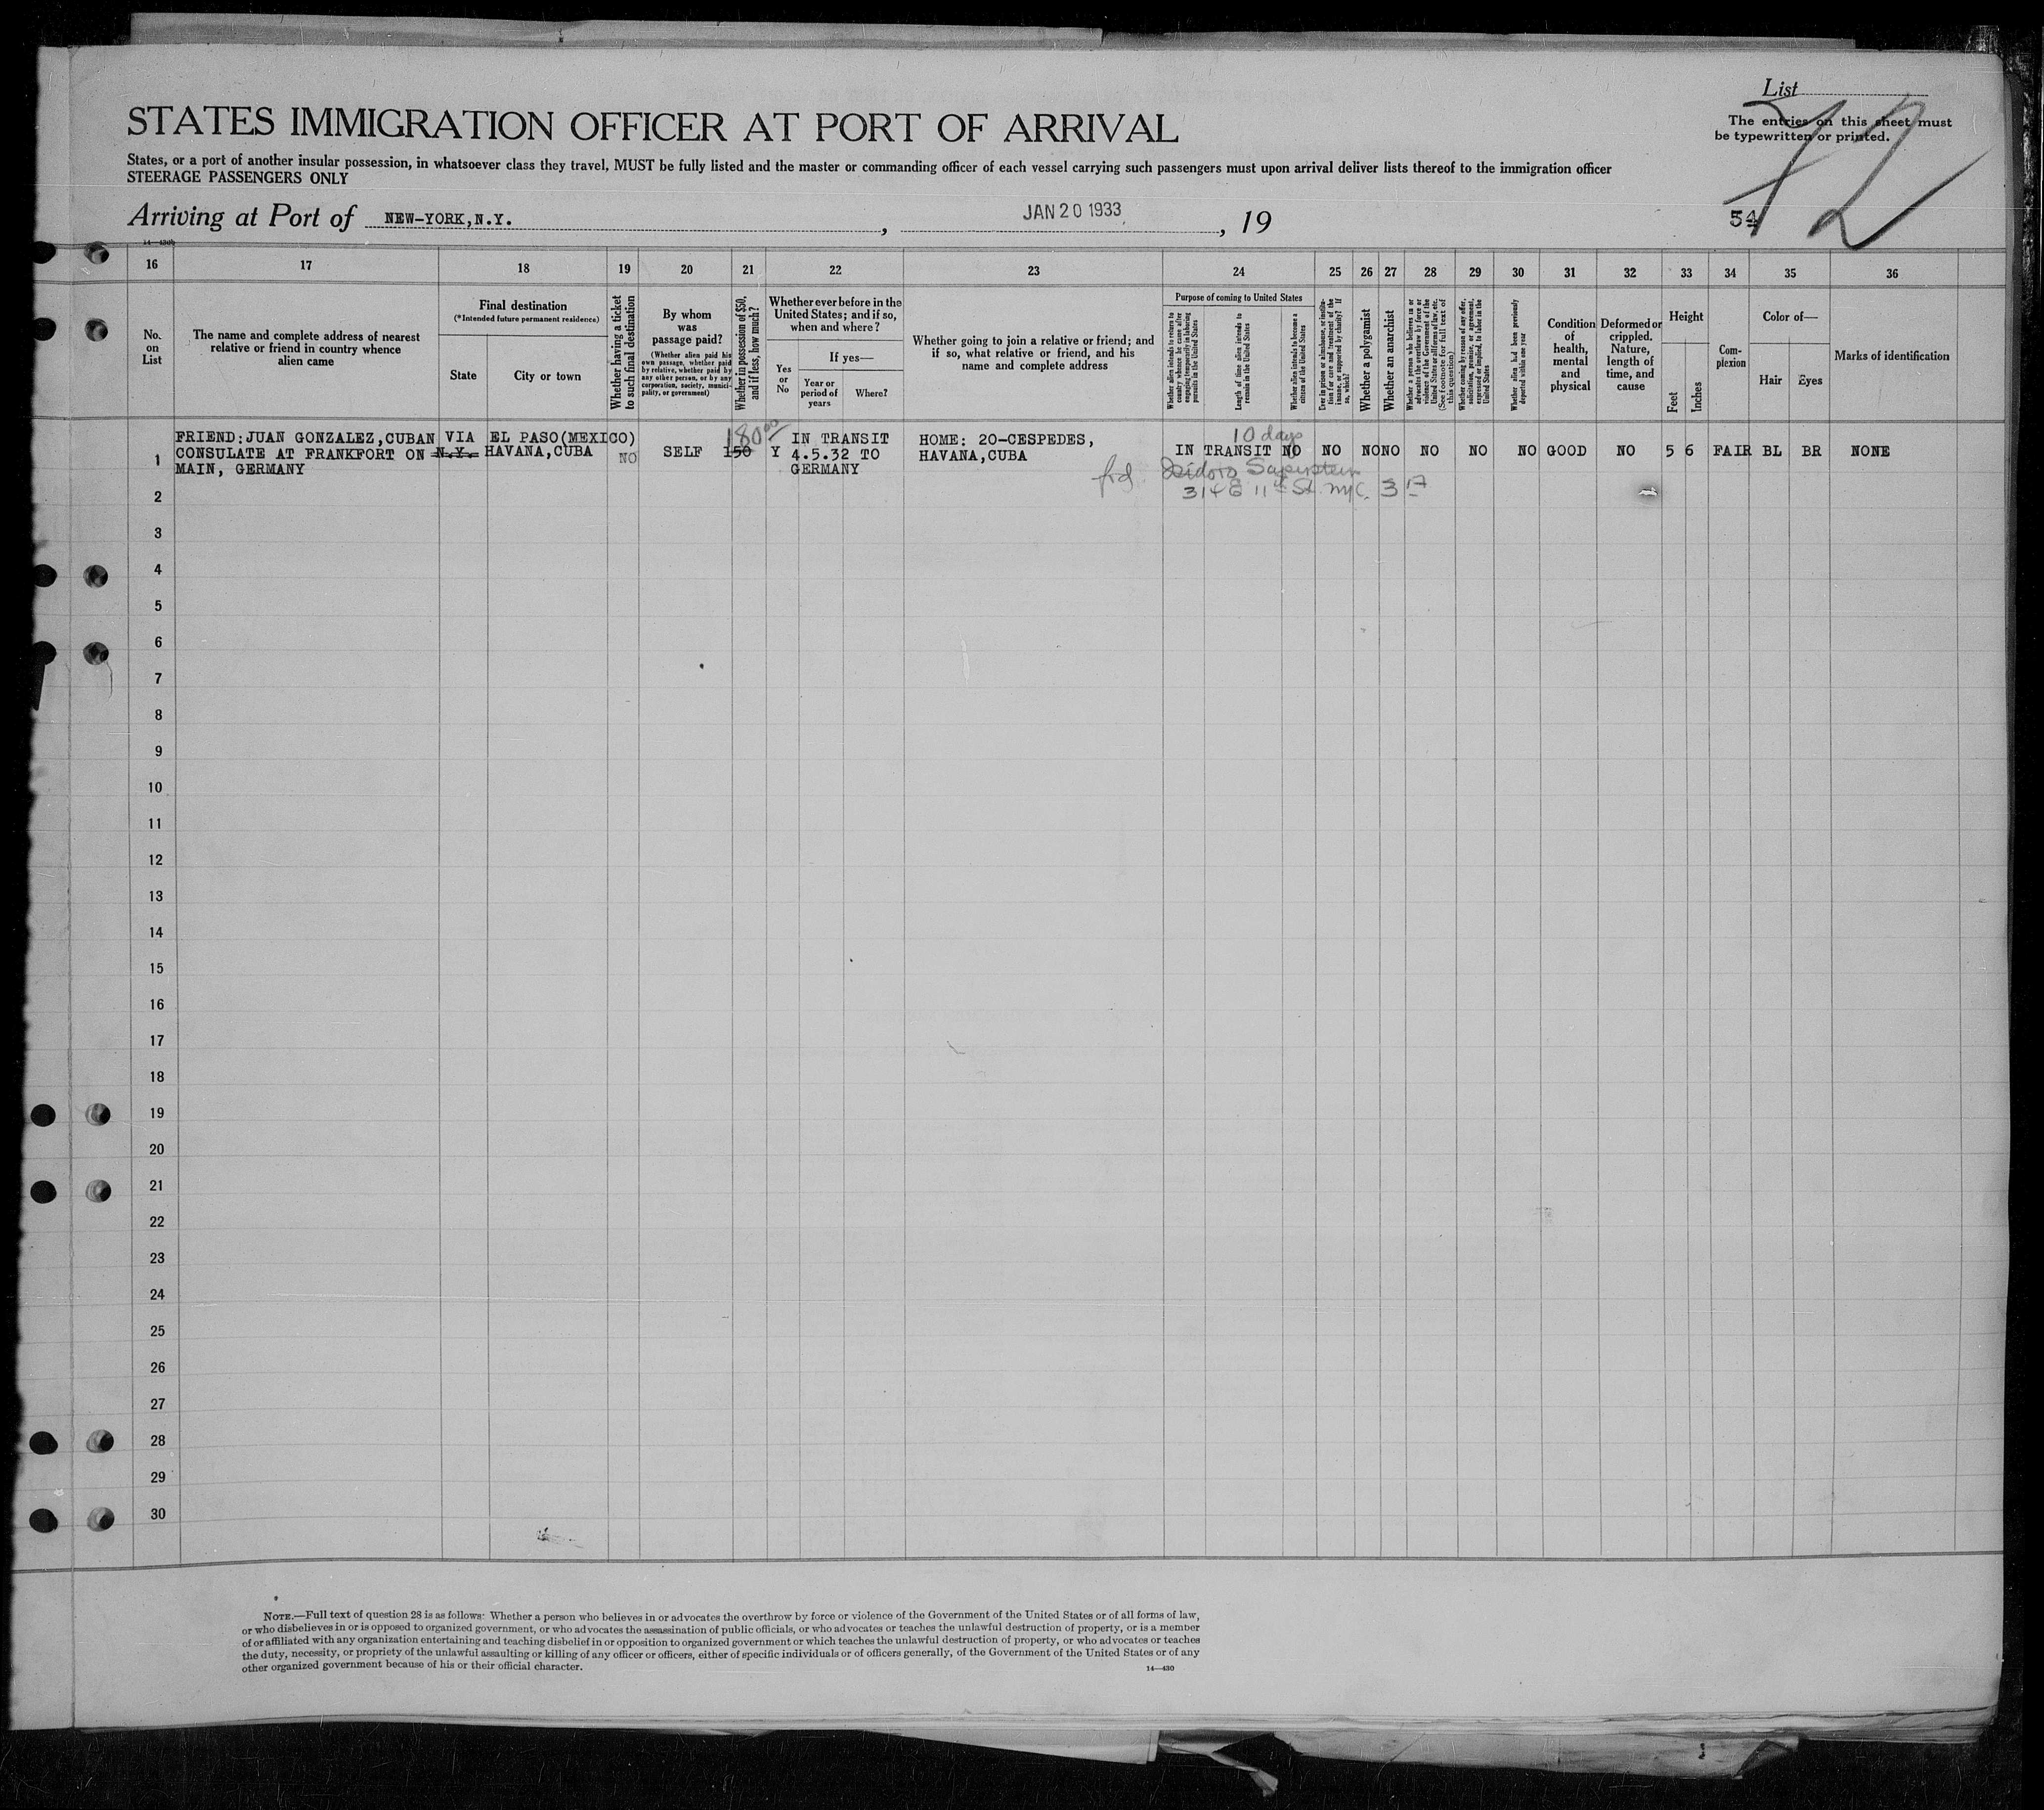 List
STATES IMMIGRATION OFFICER AT PORT OF ARRIVAL
The entries on this sheet must
be typewritten or printed.
States, or a port of another insular possession, in whatsoever class they travel, MUST be fully listed and the master or commanding officer of each vessel carrying such passengers must upon arrival deliver lists thereof to the immigration officer
STEERAGE PASSENGERS ONLY
Arriving at Port of NEW-YORK,N.Y. , JAN 20 1933 , 19
54
14—430b
16 17 18 19 20 21 22 23 24 25 26 27 28 29 30 31 32 33 34 35 36
No.
on
List
The name and complete address of nearest
relative or friend in country whence
alien came
Final destination
(*Intended future permanent residence)
State
City or town
Whether having a ticket
to such final destination
By whom
was
passage paid?
(Whether alien paid his
own passage, whether paid
by relative, whether paid by
any other person, or by any
corporation, society, munici-
pality, or government)
Whether in possession of $50,
and if less, how much?
Whether ever before in the
United States; and if so,
when and where?
Yes
or
No
If yes—
Year or
period of
years
Where?
Whether going to join a relative or friend; and
if so, what relative or friend, and his
name and complete address
Purpose of coming to United States
Whether alien intends to return to
country whence he came after
engaging temporarily in laboring
pursuits in the United States
Length of time alien intends to
remain in the United States
Whether alien intends to become a
citizen of the United States
Ever in prison or almshouse, or institu-
tion for care and treatment of the
insane, or supported by charity? If
so, which?
Whether a polygamist
Whether an anarchist
Whether a person who believes in or
advocates the overthrow by force or
violence of the Government of the
United States or all forms of law, etc.
(See footnote for full text of
this question)
Whether coming by reason of any offer,
solicitation, promise, or agreement,
expressed or implied, to labor in the
United States
Whether alien had been previously
deported within one year
Condition
of
health,
mental
and
physical
Deformed or
crippled.
Nature,
length of
time, and
cause
Height
Feet
Inches
Com-
plexion
Color of—
Hair
Eyes
Marks of identification
1
FRIEND:JUAN GONZALEZ,CUBAN
CONSULATE AT FRANKFORT ON
MAIN, GERMANY
VIA EL PASO(MEXICO)
N.Y. HAVANA,CUBA
NO
SELF
180 00
150
Y
IN TRANSIT
4.5.32 TO
GERMANY
HOME: 20-CESPEDES,
HAVANA,CUBA
10 days
IN TRANSIT NO NO NO NO NO NO NO GOOD NO 5 6 FAIR BL BR NONE
frd Isidoro Saperstein
314 E 11th St. NYC.
2
3
4
5
6
7
8
9
10
11
12
13
14
15
16
17
18
19
20
21
22
23
24
25
26
27
28
29
30
NOTE.—Full text of question 28 is as follows: Whether a person who believes in or advocates the overthrow by force or violence of the Government of the United States or of all forms of law,
or who disbelieves in or is opposed to organized government, or who advocates the assassination of public officials, or who advocates or teaches the unlawful destruction of property, or is a member
of or affiliated with any organization entertaining and teaching disbelief in or opposition to organized government or which teaches the unlawful destruction of property, or who advocates or teaches
the duty, necessity, or propriety of the unlawful assaulting or killing of any officer or officers, either of specific individuals or of officers generally, of the Government of the United States or of any
other organized government because of his or their official character.
14—430